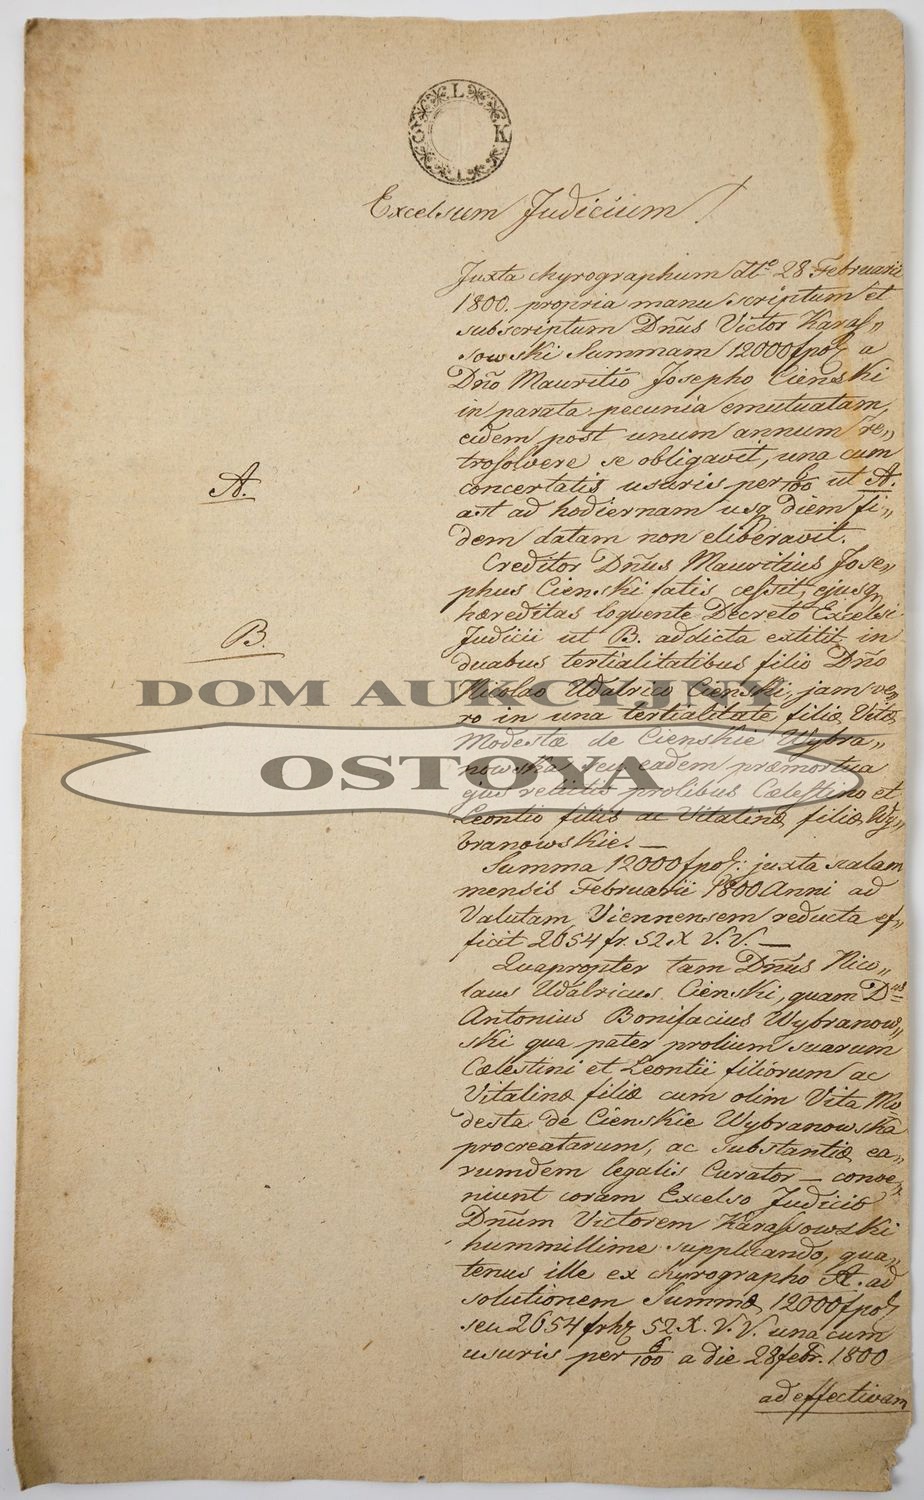 L K I G
Excelsum Judicium!
Juxta chyrographum dtto 28 Februarii
1800. propria manu scriptum et
subscriptum Dñus Victor Karaſ„
sowski Summam 12000 fpol a
Dño Mauritio Josepho Cienski
in parata pecunia emutuatam,
eidem post unum annum re„
trosolvere se obligavit, una cum
concertatis usuris per 6/100 ut A.
A.
ast ad hodiernam usq diem fi„
dem datam non eliberavit.
Creditor Dñus Mauritius Jose„
phus Cienski fatis ceſsit, ejusq
hæreditas loquente Decreto Excelsi
Judicii ut B. addicta extitit in
B.
duabus tertialitatibus filio Dño
Nicolao Udalrico Cienski, jam ve„
ro in una tertialitate filiæ Vitæ
Modestæ de Cienskie Wybra„
nowska seu eadem præmortua
ejus relictis prolibus Cælestino et
Leontio filiis ac Vitalinæ filiæ Wy„
branowskie. —
Summa 12000 fpol: juxta scalam
mensis Februarii 1800 Anni ad
Valutam Viennensem reducta ef„
ficit 2654 fr. 52 X V.V. —
Quapropter tam Dñus Nico„
laus Udalricus Cienski, quam Dnus
Antonius Bonifacius Wybranow„
ski qua pater prolium suarum
Cælestini et Leontii filiorum ac
Vitalinæ filiæ cum olim Vita Mo
desta de Cienskie Wybranowska
procreatarum, ac Substantiæ ea„
rumdem legalis Curator — conve„
niunt coram Excelso Judicio
Dñum Victorem Karaſsowski
hummillime supplicando, qua„
tenus ille ex chyrographo A. ad
solutionem Summæ 12000 fpol
seu 2654 frh 52 X. V.V. una cum
usuris per 6/100 a die 28 febr. 1800
ad effectivam
DOM AUKCYJNY
OSTOYA